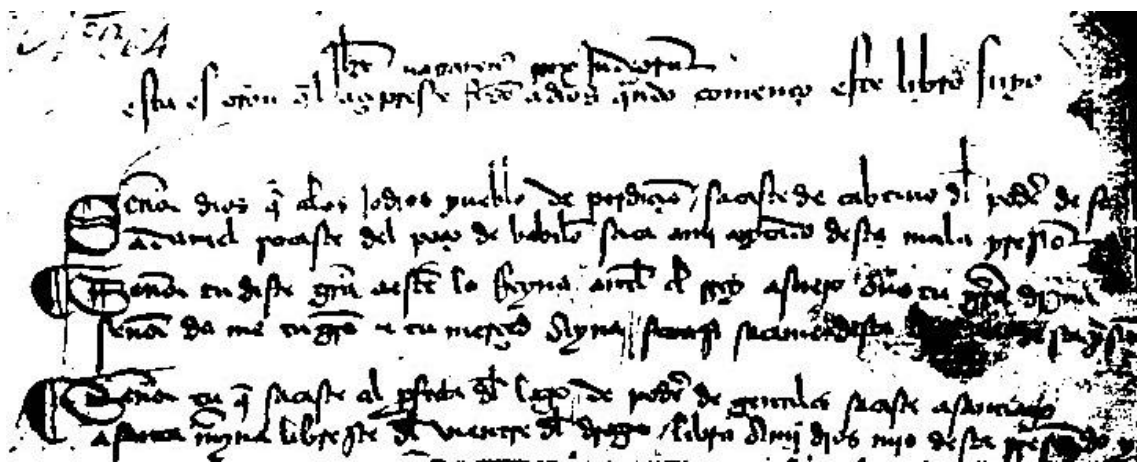 ihūs nazarenus rex iudeorum
esta es oraçion q̄l açipreste fizo a dios q̄ndo començo este libro suyo
Señor dios q̄ alos jodios pueblo de perdiçion / sacaste de cabtiuo dl poder de
a daniel sacaste del poço de babilon saca ami coytado desta mala presion
Señor tu diste grãa a ester la Reyna antl el Rey asuero
señor da me tu grãa e tu merçed Ayna sacame desta
Señor tu q̄ sacaste al profeta dl lago / de poder de gentiles sacaste a santiago
a santa m̃yna libreste dl vientre dl drago / libra Ami dios mio desta presion do